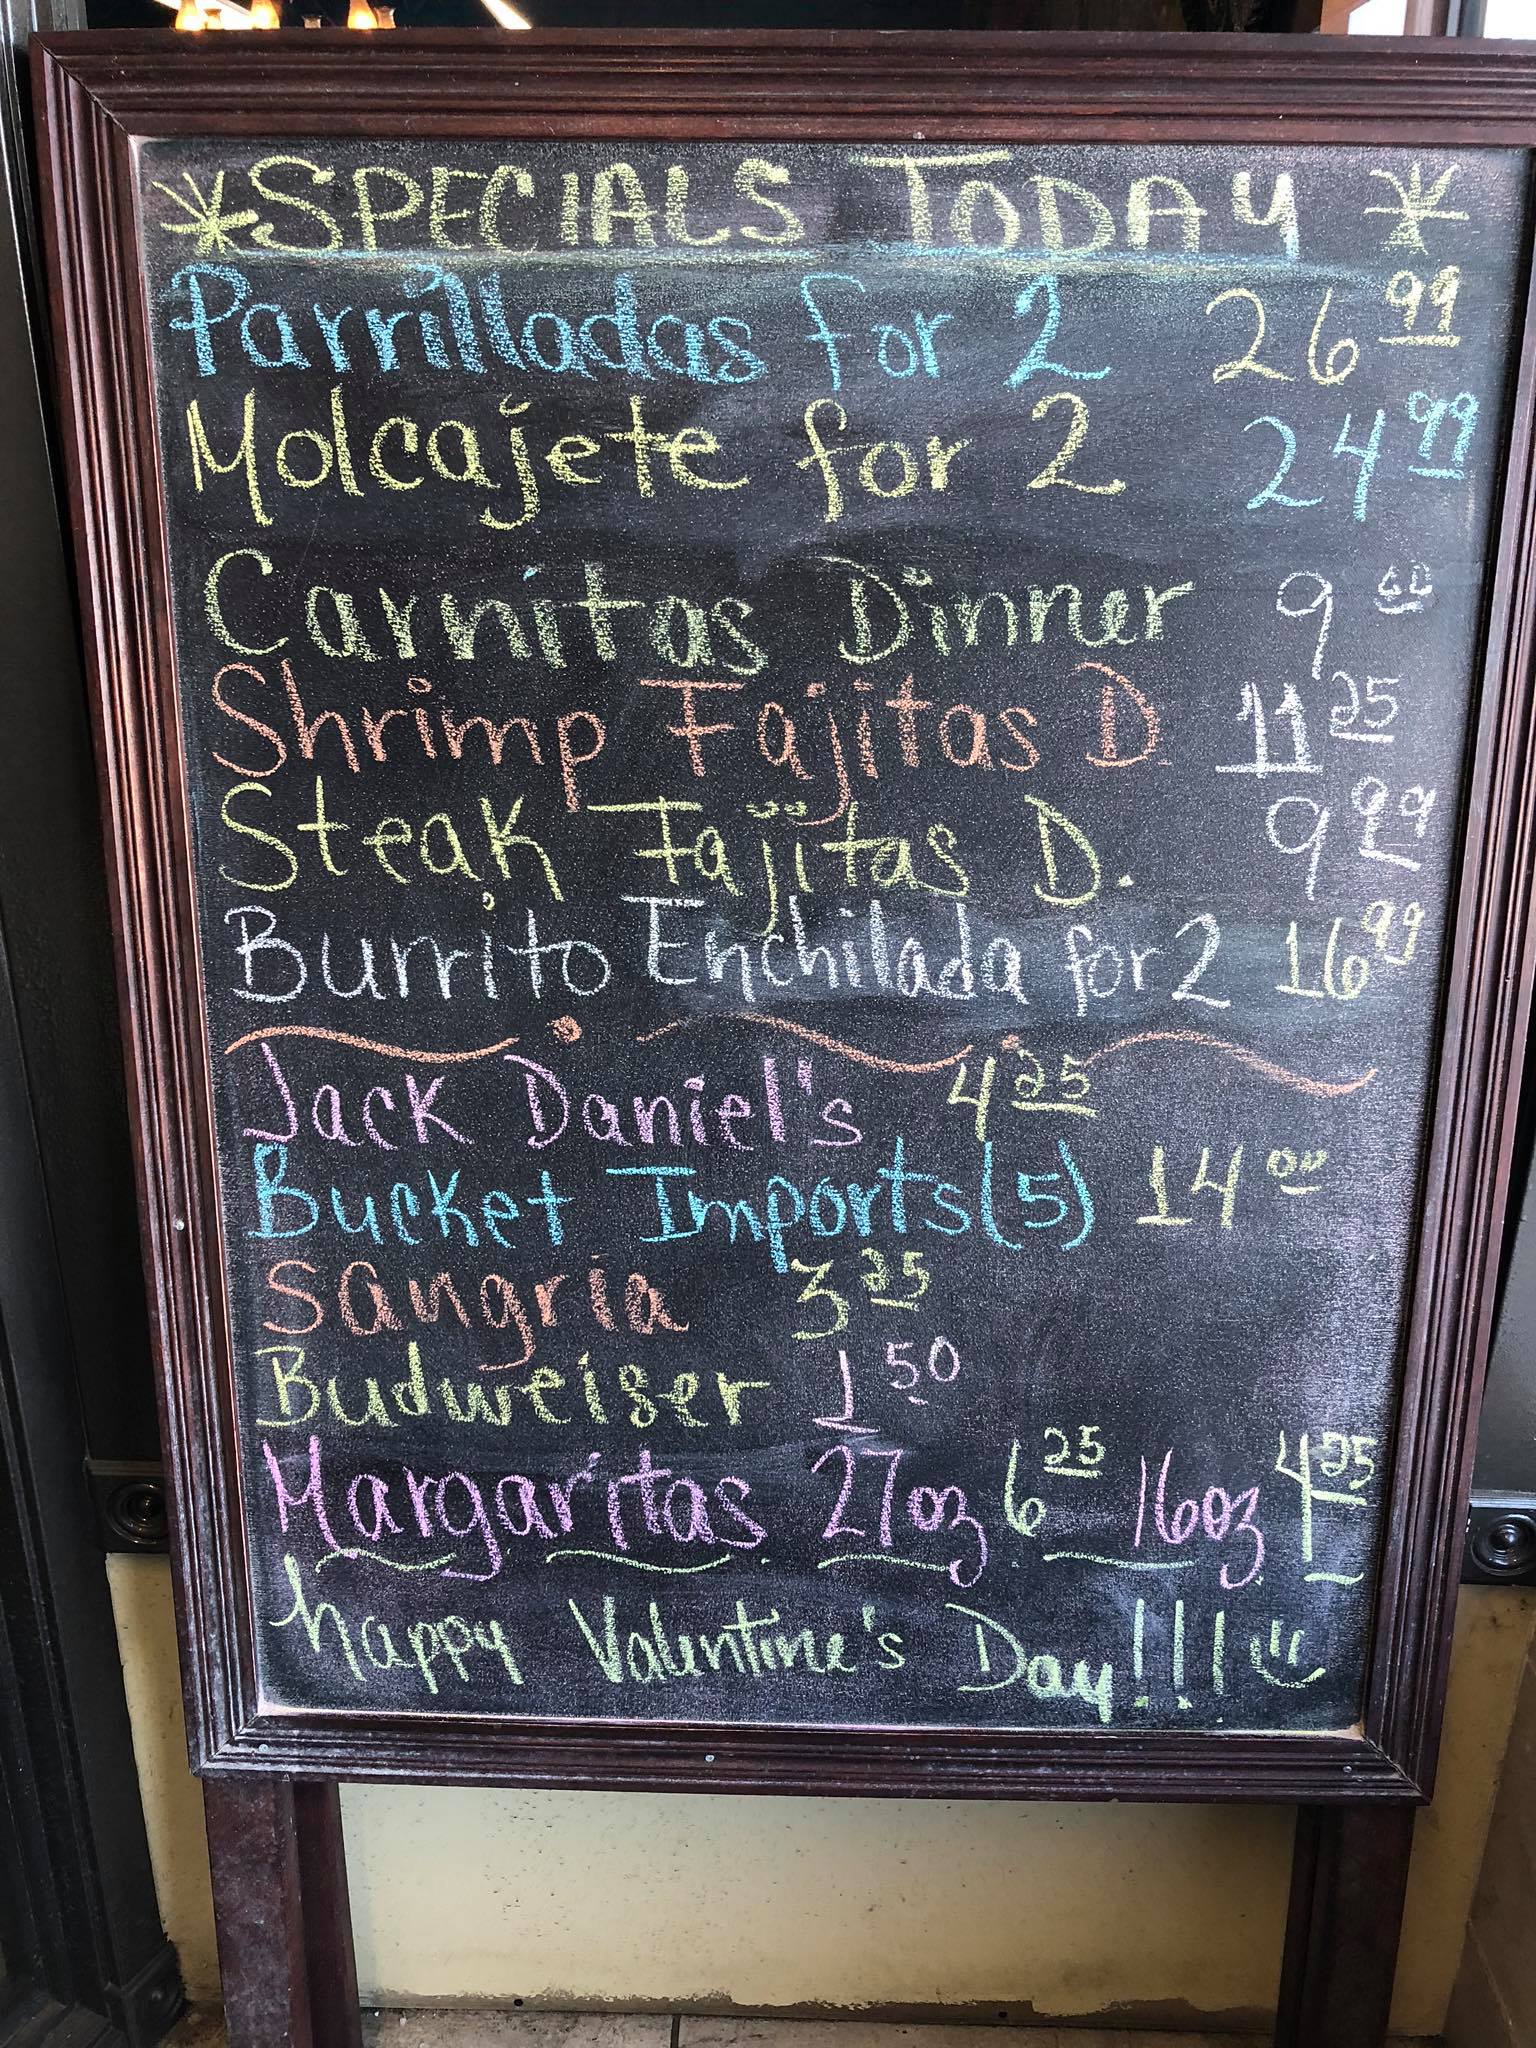 *SPECIALS TODAY*
Parrilladas for 2 26 99
Molcajete for 2 24 99
Carnitas Dinner 9
Shrimp Fajitas D 11 25
Steak Fajitas D. 9 99
Burrito Enchilada for 2 16 99
Jack Daniel's 4 25
Bucket Imports (5) 14 00
Sangria 3 25
Budweiser 1 50
Margaritas 27oz 6 25 16oz 4 25
happy Valentine's Day!!!